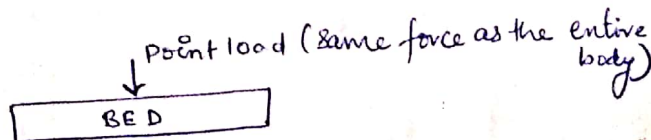 point load (same force as the entire
body)
BED